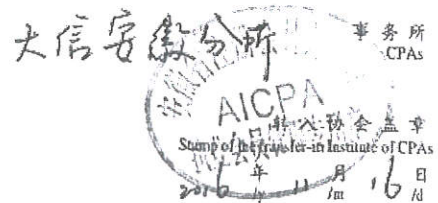 大信安徽分所 事务所
CPAs
AICPA
转入协会盖章
Stamp of the transfer-in Institute of CPAs
2016年 11月 16日
/y /m /d